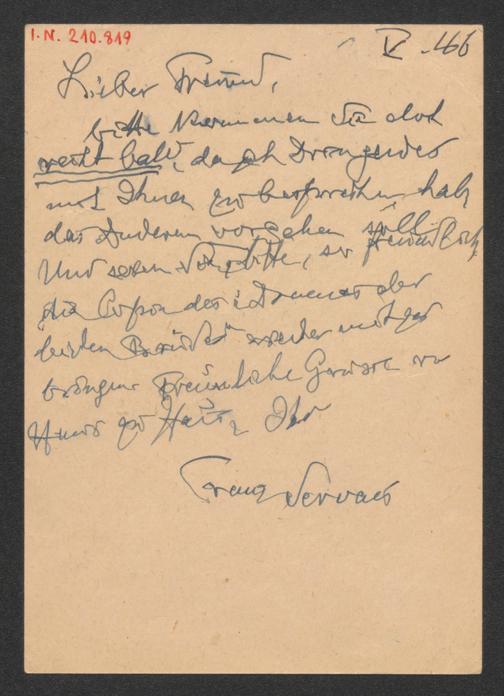 I.N. 210.819
V .466
Lieber Freund,
bitte kommen Sie doch
recht bald, da ich Dringendes
mit Ihnen zu besprechen hab,
das Anderem vorgehen soll.
Und seien Sie, bitte, so freundlich,
die Copien des
beiden wieder mitzu
bringen. Freundliche Grüsse von
Haus zu Haus, Ihr
Franz Servaes